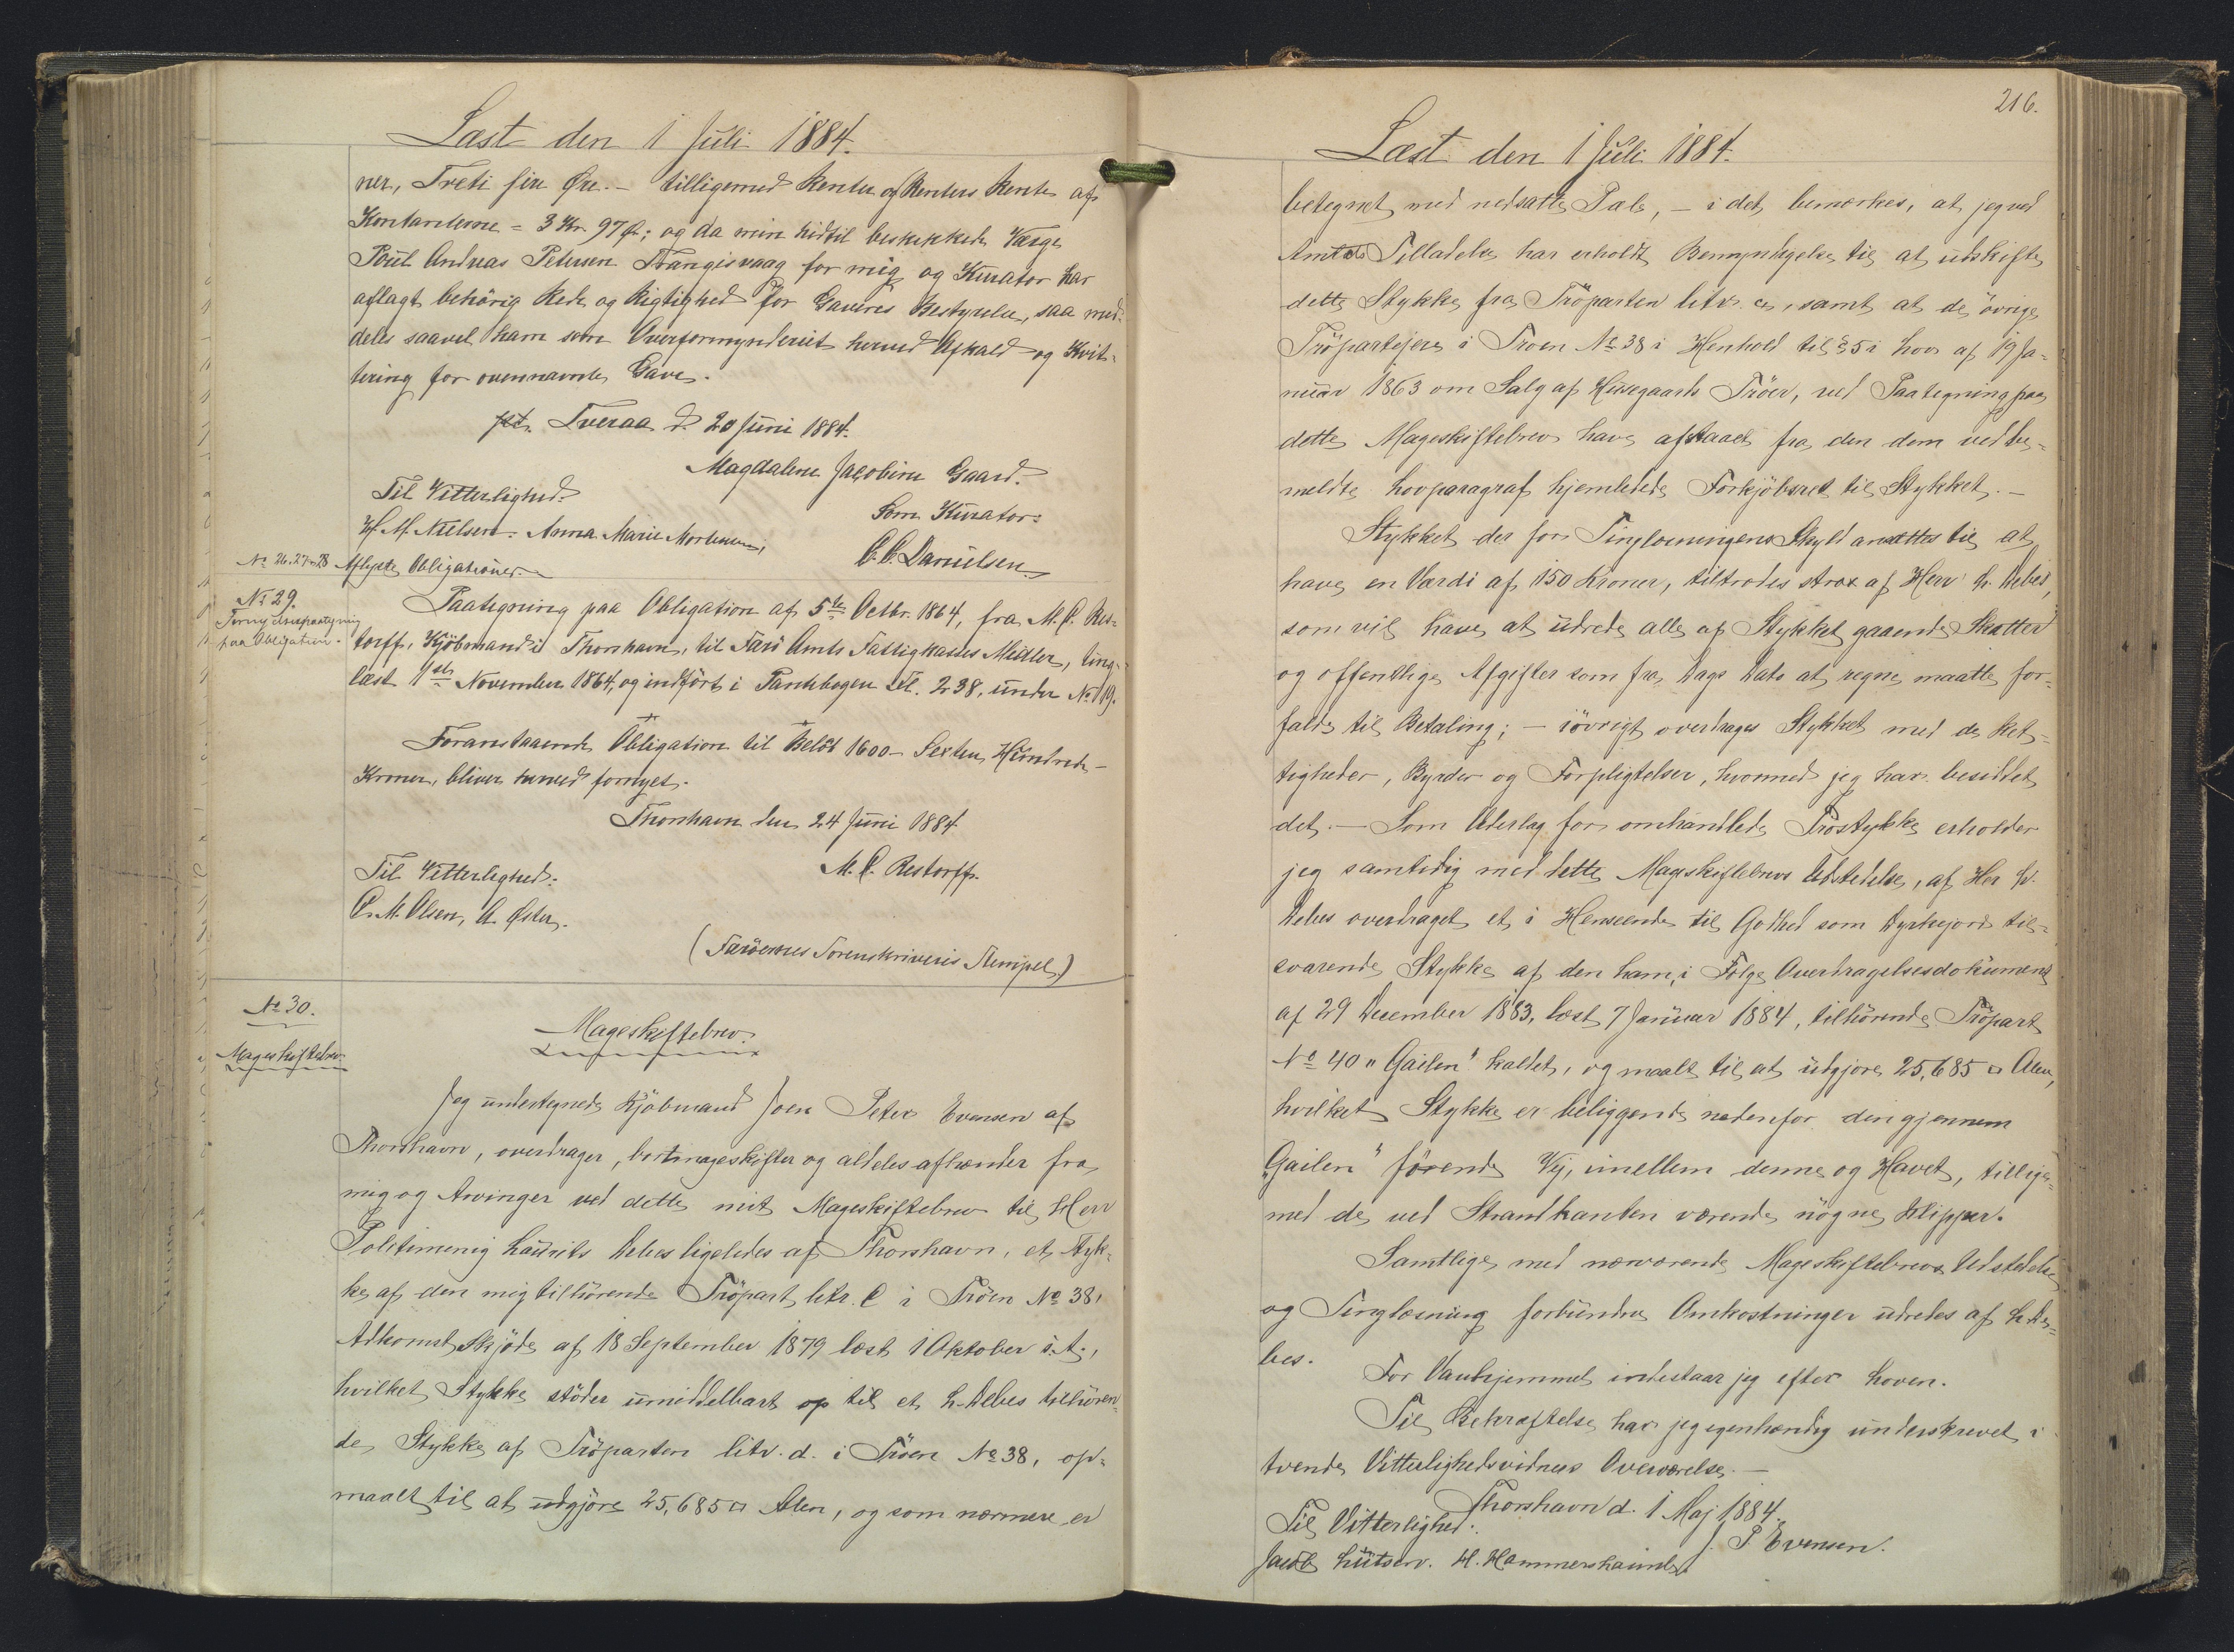 Læst den 1 Juli 1884.
ner, Treti fire Øre. – tilligemed Renter og Renters Rente af
Kontanterne = 3 Kr. 97 Ø.; og da min hidtil beskikkede Værge
Poul Andreas Petersen Trangisvaag for mig og Kurator har
aflagt behörig Rede og Rigtighed for Gavens Bestyrelse, saa med-
deles saavel ham som Overformynderiet herved Afkald og Kvit-
tering for ovennævnte Gave.
pt. Tveraa d. 20 Juni 1884.
Magdalene Jacobine Gaard.
Til Vitterlighed:
Som Kurator:
H. M. Nielsen. Anna Marie Mortensen,
C. C. Danielsen.
No 26.27.28 Aflyste Obligationer.
No 29.
Fornyelsespaategning
paa Obligation.
Paategning paa Obligation af 5te Octbr. 1864, fra M. C. Res-
torff, Kjöbmand i Thorshavn, til Färö Amts Fattigkasses Midler, ting-
læst 1ste November 1864, og indfört i Pantebogen fol. 238, under No 119.
Foranstaaende Obligation til Belöb 1600 – Sexten Hundrede –
Kroner, bliver herved fornyet.
Thorshavn den 24 Juni 1884
Til Vitterlighed:
M. C. Restorff.
C. M. Olsen, A. Öster.
(Færöernes Sorenskriveris Stempel.)
No 30.
Mageskiftebrev.
Mageskiftebrev.
Jeg undertegnede Kjöbmand Joen Peter Evensen af
Thorshavn, overdrager, bortmageskifter og aldeles afhænder fra
mig og Arvinger ved dette mit Mageskiftebrev til Herr
Politimenig Laurits Debes ligeledes af Thorshavn, et Styk-
ke af den mig tilhörende Tröpart litr. C i Tröen No 38,
Adkomst Skjöde af 18 September 1879 læst 1 Oktober s. A.,
hvilket Stykke stöder umiddelbart op til et L. Debes tilhören-
de Stykke af Tröparten litr. d. i Tröen No 38, op-
maalt til at udgjöre 25,685 □ Alen, og som nærmere er
216.
Læst den 1 Juli 1884.
betegnet med nedsatte Pæle, – i det bemærkes, at jeg ved
Amtets Tilladelse har erholdt Bemyndigelse til at udskifte
dette Stykke fra Tröparten litr. c, samt at de övrige
Tröpartejere i Tröen No 38 i Henhold til § 5 i Lov af 19 Ja-
nuar 1863 om Salg af Huusegaards Tröer, ved Paategning paa
dette Mageskiftebrev have afstaaet fra den dem ved be-
meldte Lovparagraf hjemlede Forkjöbsret til Stykket. –
Stykket der for Tinglæsningens Skyld ansættes til at
have en Værdi af 150 Kroner, tiltrædes strax af Herr L. Debes,
som vil have at udrede alle af Stykket gaaende Skatter
og offentlige Afgifter som fra Dags Dato at regne maatte for-
falde til Betaling; – iövrigt overdrages Stykket med de Ret-
tigheder, Byrder og Forpligtelser, hvormed jeg har besiddet
det. – Som Vederlag for omhandlede Tröstykke erholder
jeg samtidig med dette Mageskiftebrevs Udstedelse, af Her L.
Debes overdraget et i Henseende til Godhed som Dyrkejord til-
svarende Stykke af den ham, i Fölge Overdragelsesdokument
af 29 December 1883, læst 7 Januar 1884, tilhörende Tröpart
No 40 "Gailen" kaldet, og maalt til at udgjöre 25,685 □ Alen,
hvilket Stykke er beliggende nedenfor den gjennem
"Gailen" förende Vej, imellem denne og Havet, tillige-
med de ved Strandkanten værende nögne Klipper.
Samtlige med nærværende Mageskiftebrevs Udstedelse
og Tinglæsning forbundne Omkostninger udredes af L. De-
bes.
For Vanhjemmel indestaar jeg efter Loven.
Til Bekræftelse har jeg egenhændig underskrevet i
tvende Vitterlighedsvidners Overværelse. –
Thorshavn d. 1 Maj 1884.
Til Vitterlighed:
J. P Evensen.
Jacob Lützen. H. Hammershaimb,